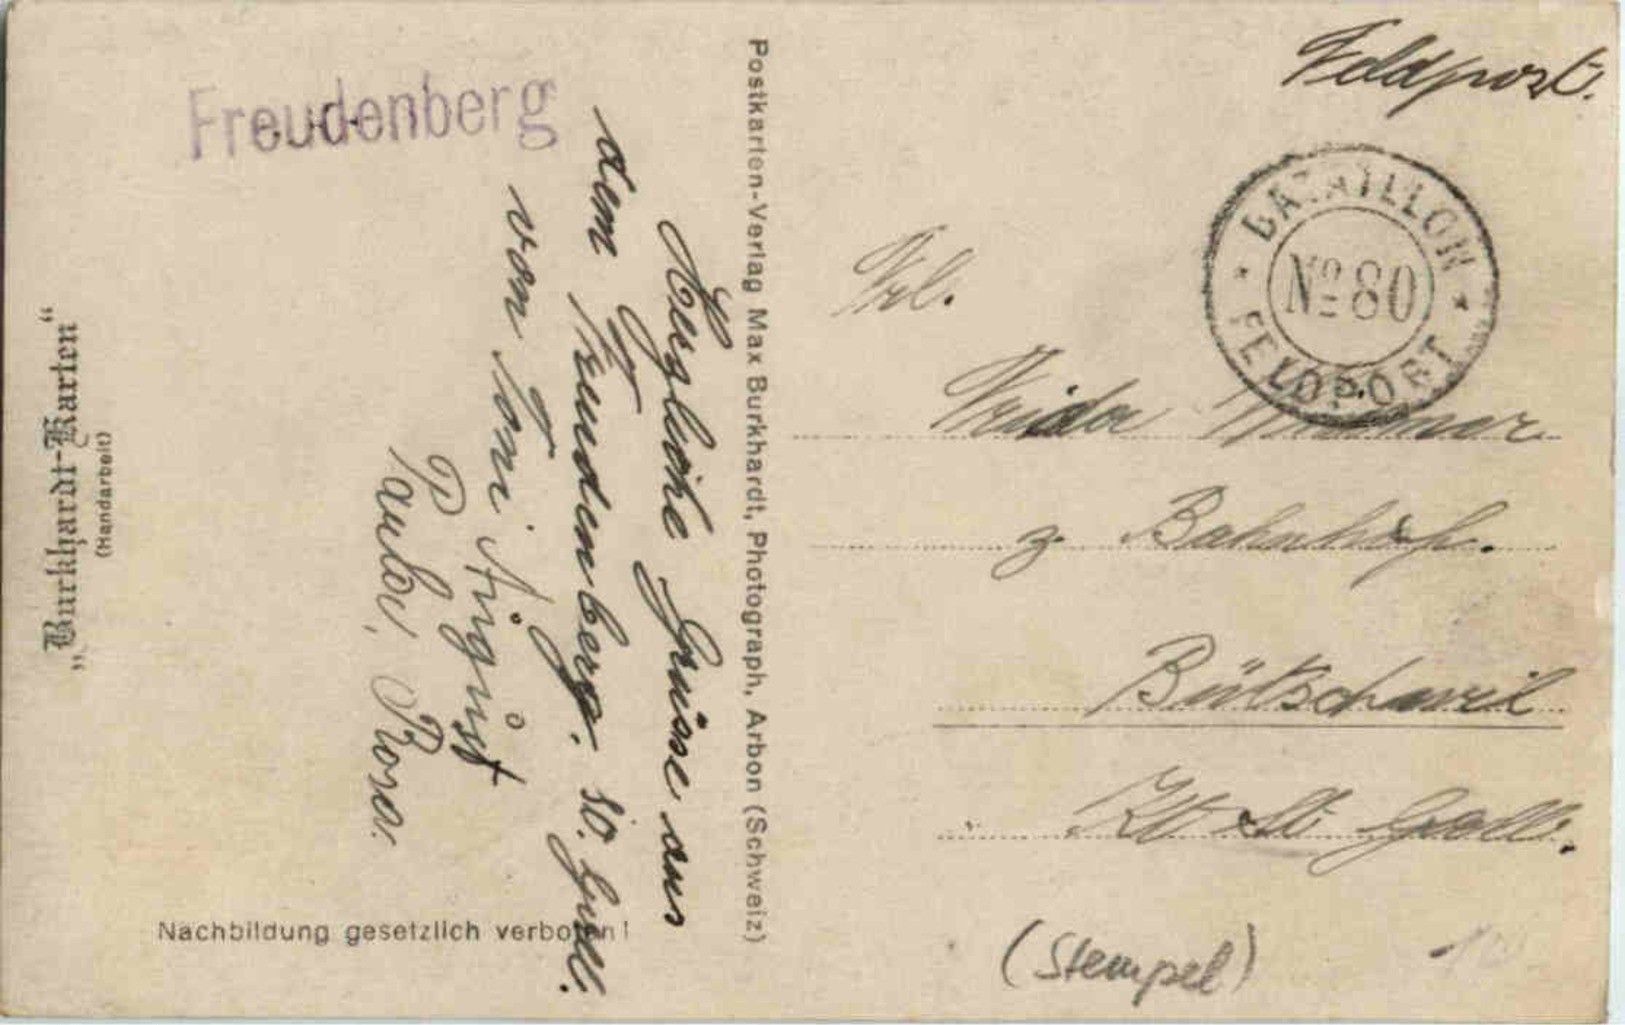 Freudenberg
Herzliche Grüsse aus
dem Freudenberg. St. Gall.
von Toni August
Paula, Rosa.
„Burkhardt-Karten“
(Handarbeit)
Nachbildung gesetzlich verboten!
Postkarten-Verlag Max Burkhardt, Photograph, Arbon (Schweiz)
Feldpost.
* BATAILLON *
No 80
FELDPOST
Frl.
Frida
z. Bahnhof.
Bütschwil
Kt St Gall.
(Stempel)